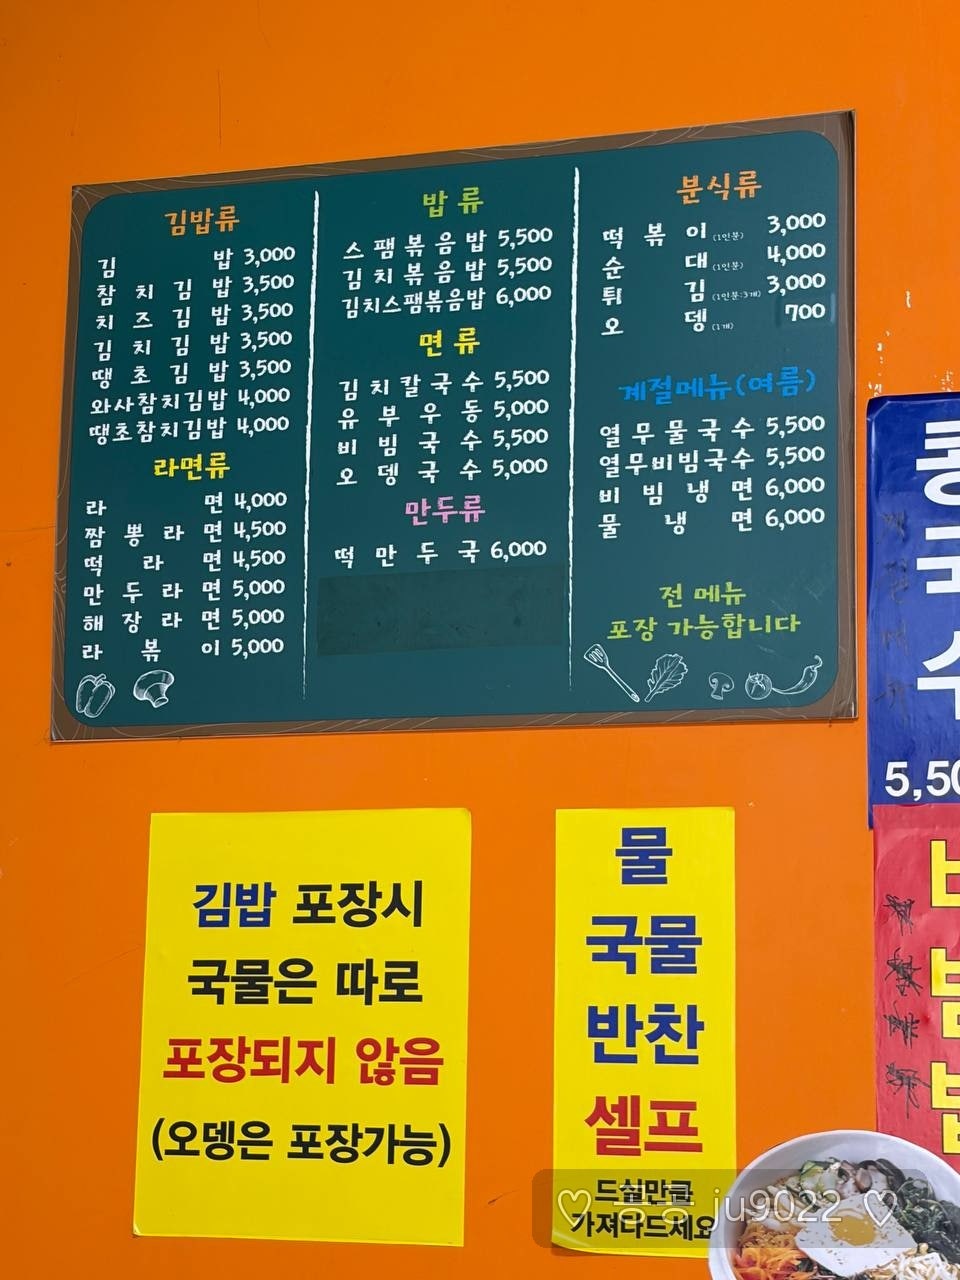 김밥류
김 밥 3,000
참 치 김 밥 3,500
치 즈 김 밥 3,500
김 치 김 밥 3,500
땡 초 김 밥 3,500
와사참치김밥 4,000
땡초참치김밥 4,000
라면류
라 면 4,000
짬 뽕 라 면 4,500
떡 라 면 4,500
만 두 라 면 5,000
해 장 라 면 5,000
라 볶 이 5,000
밥류
스 팸 볶 음 밥 5,500
김 치 볶 음 밥 5,500
김치스팸볶음밥 6,000
면류
김 치 칼 국 수 5,500
유 부 우 동 5,000
비 빔 국 수 5,500
오 뎅 국 수 5,000
만두류
떡 만 두 국 6,000
분식류
떡 볶 이 (1인분) 3,000
순 대 (1인분) 4,000
튀 김 (1인분:3개) 3,000
오 뎅 (1개) 700
계절메뉴(여름)
열 무 물 국 수 5,500
열무비빔국수 5,500
비 빔 냉 면 6,000
물 냉 면 6,000
전 메뉴
포장 가능합니다
김밥 포장시
국물은 따로
포장되지 않음
(오뎅은 포장가능)
물
국물
반찬
셀프
드실만큼
가져다드세요
콩
국
수
비
빔
밥
♡ ju9022 ♡